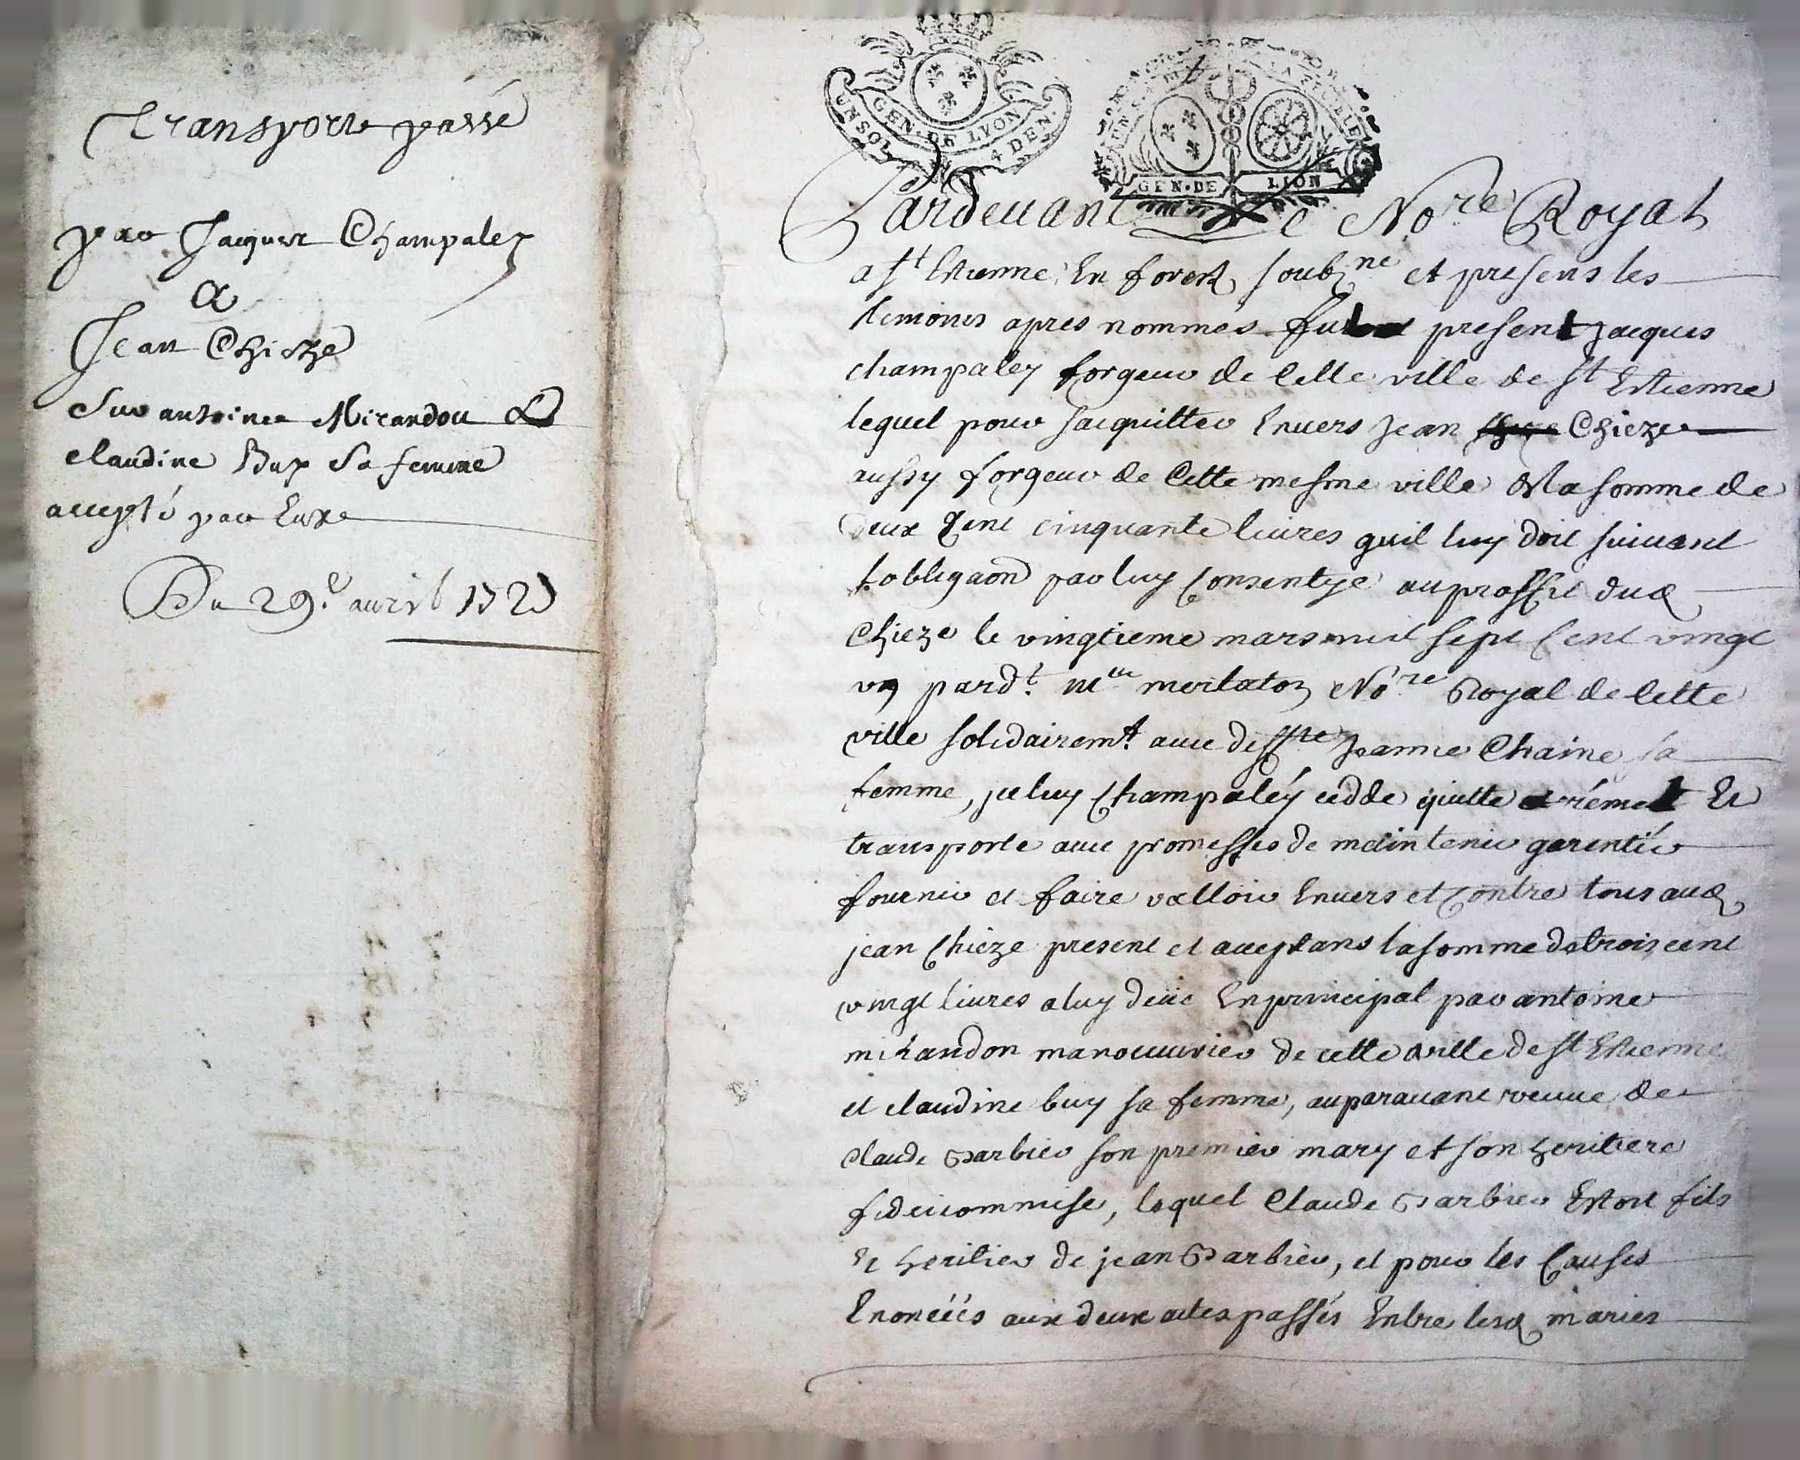 Transporte passé
par Jacques Champaley
A
Jean Chieze
Sur antoinee Mirandou &
claudine Buy Sa femme
accepté par Euxe
Du 29.e avril 172
UN SOL GEN. DE LYON 4 DEN.
GEN. DE LION
Pardevant Le No.re Royal
a st Estienne En forest soubz.ne et presens les
temoins apres nommés fut present Jacques
champaley forgeur de Cette ville de st Estienne
lequel pour sacquitter Envers Jean Chieze
aussy forgeur de Cette mesme ville de la somme de
deux Cent cinquante livres quil luy doit suivant
Lobligaon par luy Consentye au proffit dud
Chieze le vingtieme mars mil sept Cent vingt
un pard.t Me No.re Royal de Cette
ville solidairem.t avec deff.te Jeanne Chaine sa
femme, jceluy Champaley cedde quitte remet Et
transporte avec promesses de maintenir garentir
fournir et faire valloir Envers et Contre tous aud
jean Chieze present et acceptans la somme de trois cent
vingt livres a luy deüe En principal par antoine
mirandon manouuvrier de cette ville de st Estienne
et claudine buy sa femme, auparavant veuve de
Claude Barbier son premier mary et son heritiere
fideicommise, lequel Claude Barbier Estoit fils
Et heritier de jean Barbier, et pour les Causes
Enoncées aux deux actes passés Entre lesd mariés